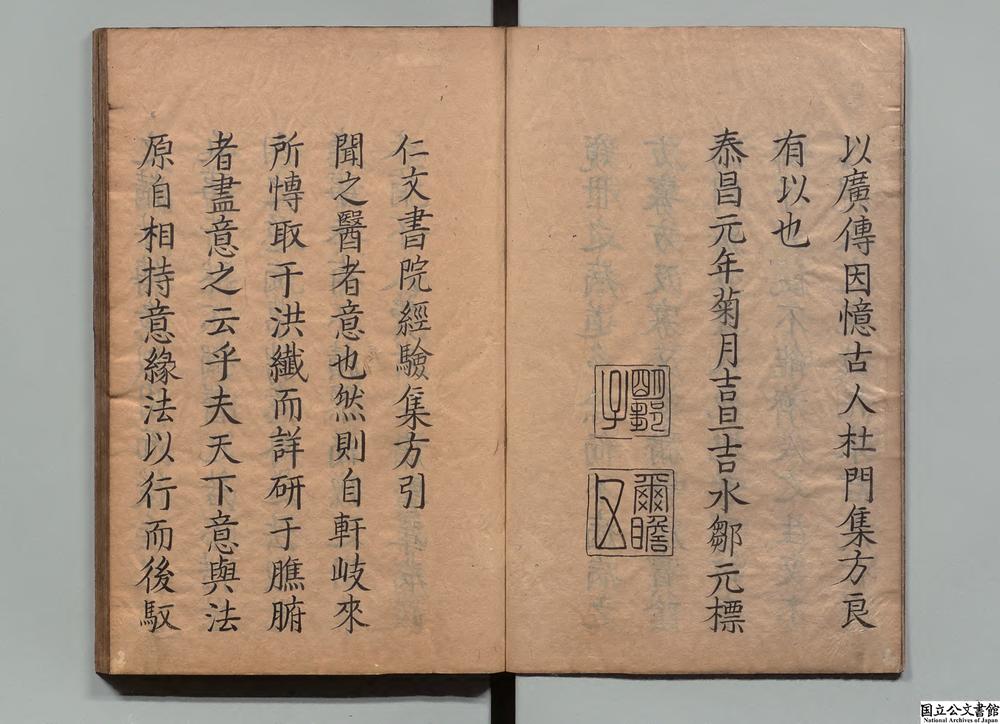 以廣傳因憶古人杜門集方良
有以也
泰昌元年菊月吉旦吉水鄒元標
爾瞻
仁文書院經驗集方引
聞之醫者意也然則自軒岐來
所慱取于洪纖而詳研于膲腑
者盡意之云乎夫天下意與法
原自相持意緣法以行而後馭
国立公文書館
National Archives of Japan